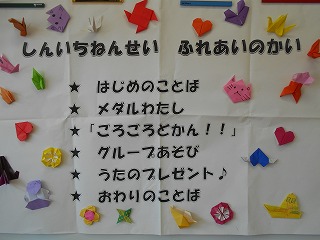 しんいちねんせい　ふれあいのかい
★　はじめのことば
★　メダルわたし
★「ごろごろどかん！！」
★　グループあそび
★　うたのプレゼント♪
★　おわりのことば